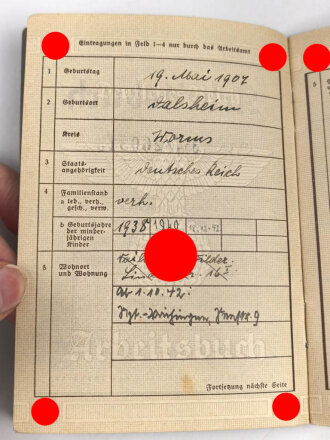 Eintragungen in Feld 1–4 nur durch das Arbeitsamt
1 Geburtstag 19. Mai 1907
2 Geburtsort Dalsheim
Kreis Worms
3 Staats-
angehörigkeit Deutsches Reich
4 Familienstand
a led., verh.,
gesch., verw. verh.
b Geburtsjahre
der minder-
jährigen
Kinder 1938 1940
5 Wohnort
und Wohnung
16
Ab 1.10.42:
9
Arbeitsbuch
Fortsetzung nächste Seite